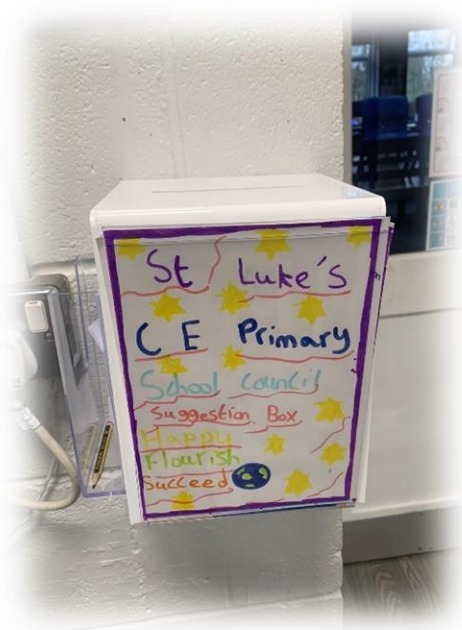 St Luke's
C E Primary
School council
Suggestion Box
Happy
Flourish
Succeed